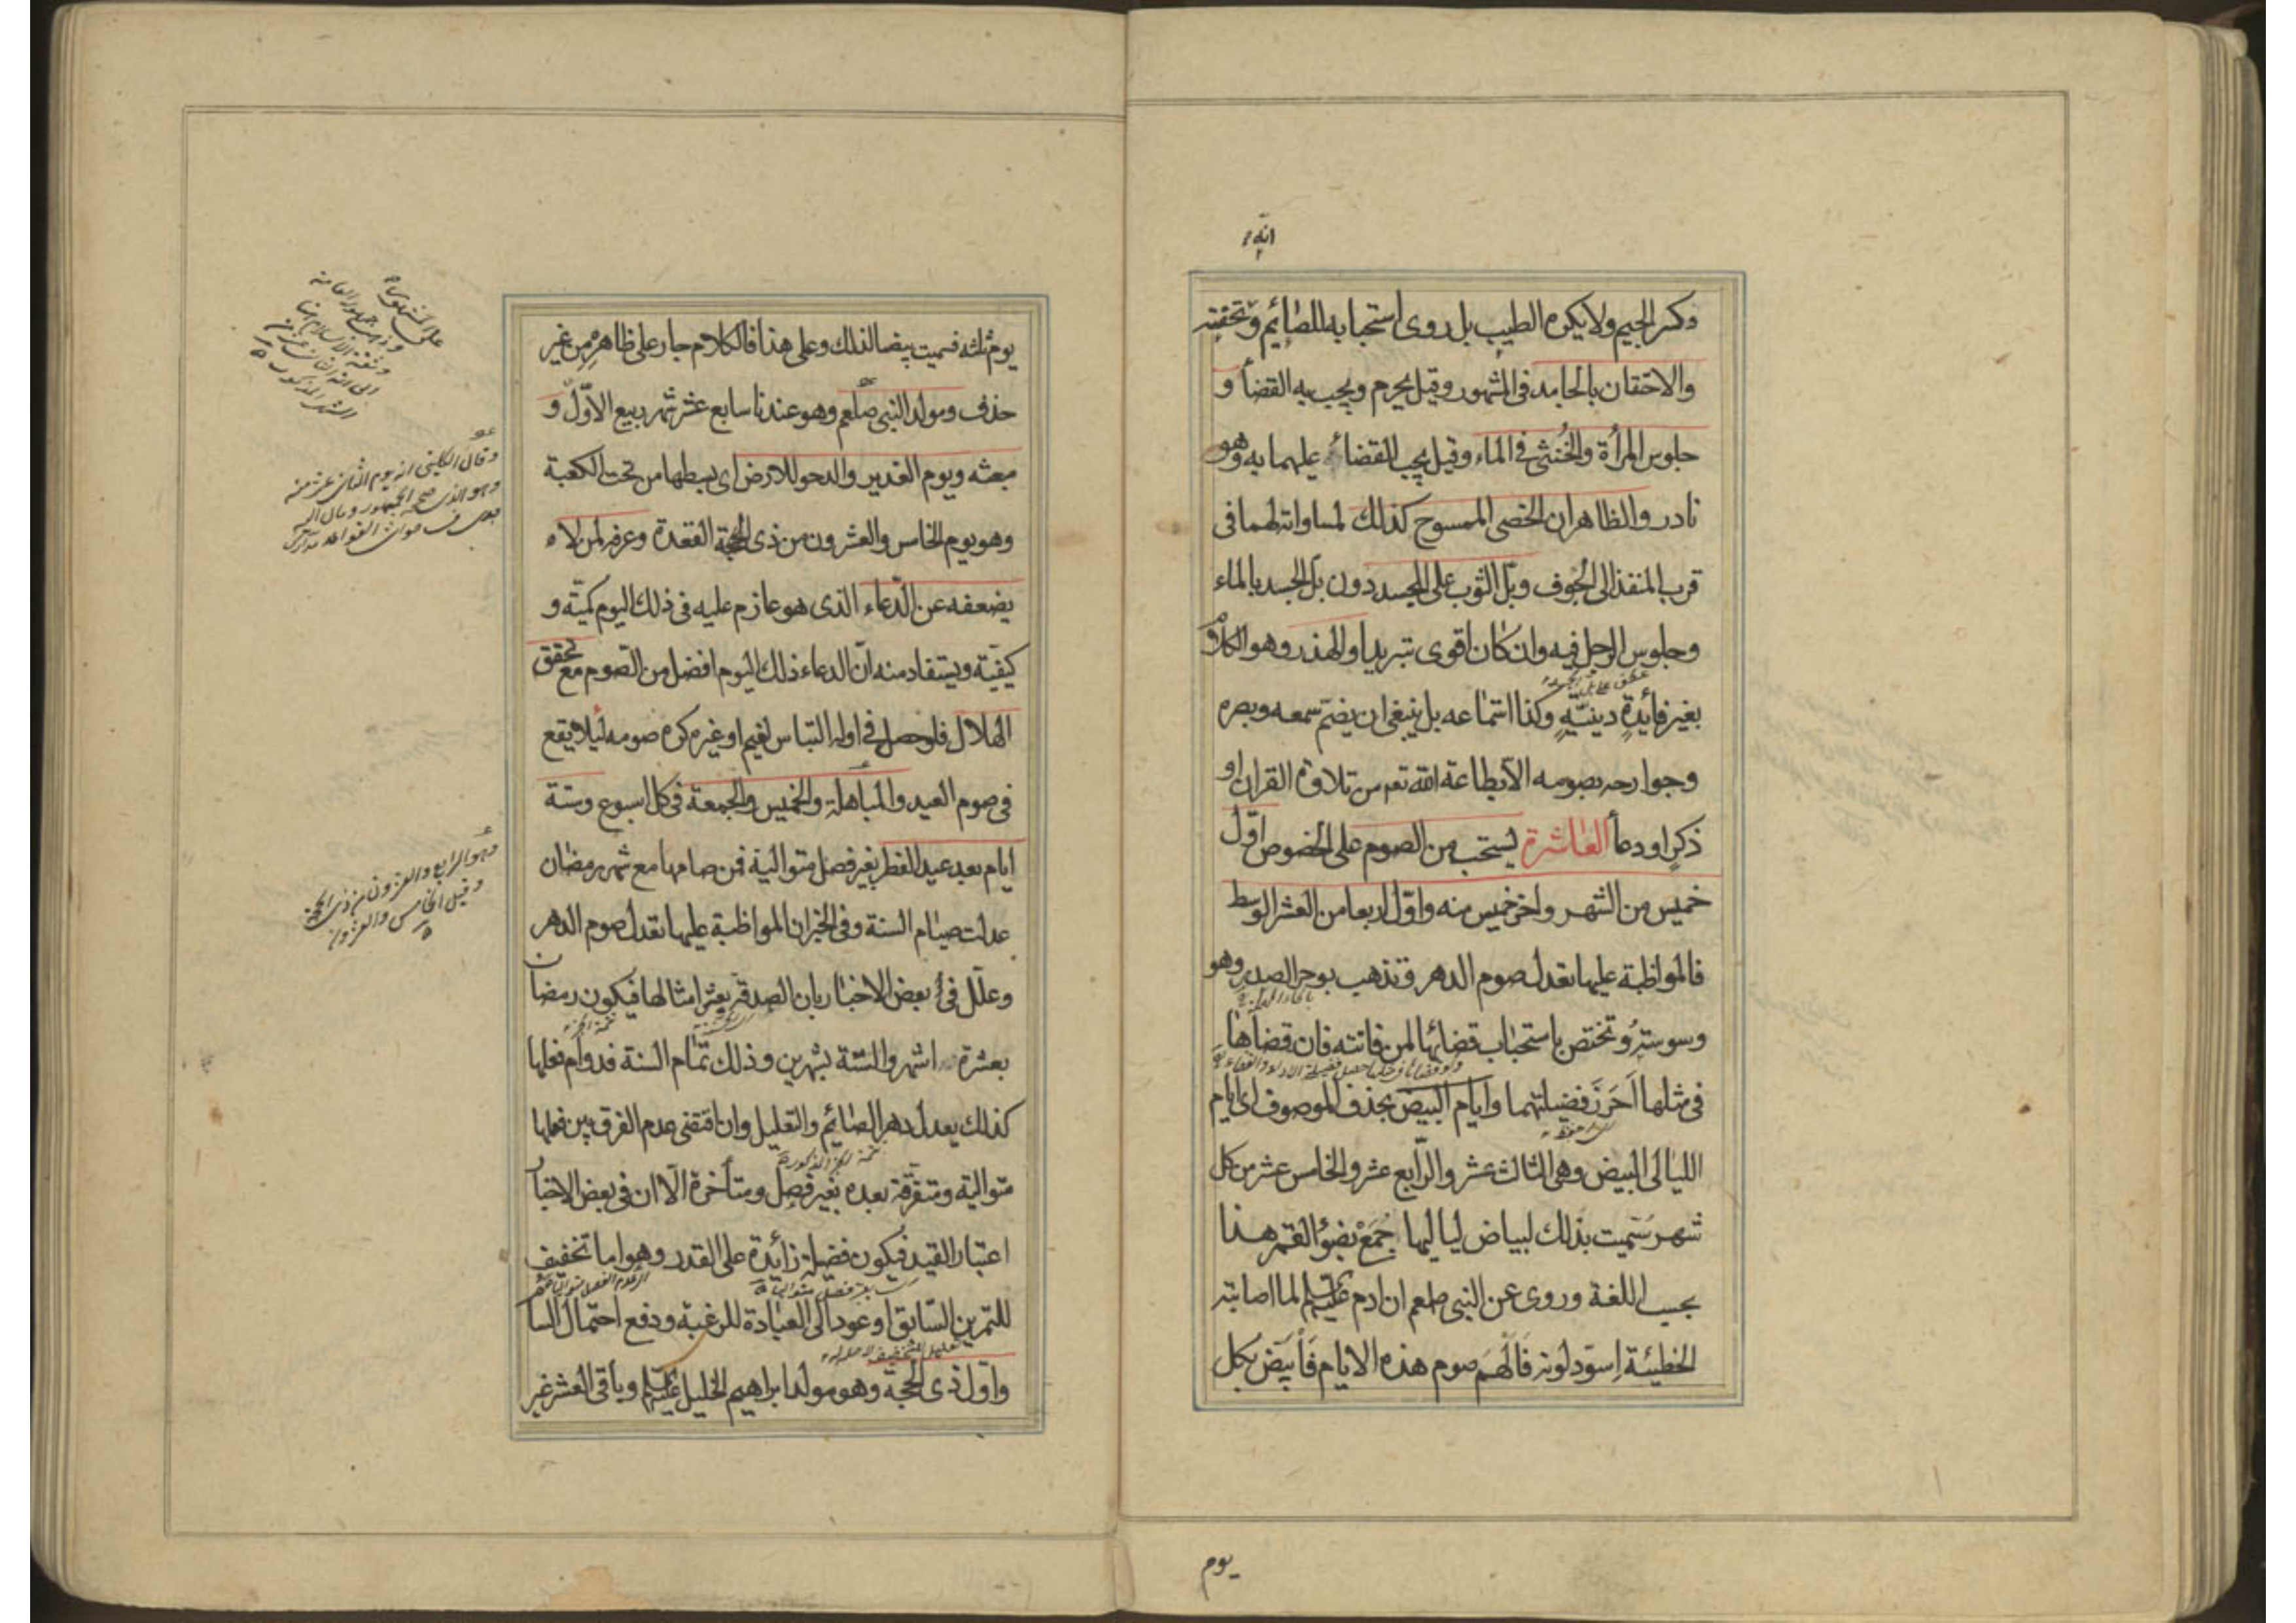 وكسر الجيم ولا يكره الطيب بل روى استحبابه للصائم وتحفته
والاحتقان بالجامد فى المشهور وقيل يحرم ويجب به القضأ و
جلوس المرأة والخنثى فى الماء وقيل يجب القضاء عليهما به وهو
نادر والظاهر ان الخصى الممسوح كذلك لمساواته لهما فى
قرب المنفذ الى الجوف وبل الثوب على الجسد دون بل الجسد بالماء
وجلوس الرجل فيه وان كان اقوى تبريدا والهذر وهو الكلام
بغير فائدة دينية وكذا استماعه بل ينبغى ان يصم سمعه وبصره
وجوارحه بصومه الا بطاعة الله تعم من تلاوة القران او
ذكر او دعأ العاشرة يستحب من الصوم على الخصوص اول
خميس من الشهر واخر خميس منه واول اربعا من العشر الوسط
فالمواظبة عليها تعدل صوم الدهر وتذهب بوحر الصدر وهو
وسوسته وتختص باستحباب قضائها لمن فاتته فان قضاها
فى مثلها احرز فضيلتهما وايام البيض بحذف الموصوف اى ايام
الليالى البيض وهى الثالث عشر والرابع عشر والخامس عشر من كل
شهر سميت بذلك لبياض لياليها جمع بضوء القمر هذا
بحسب اللغة وروى عن النبى صلعم ان ادم عليه السلم لما اصابته
الخطيئة اسود لونه فالهم صوم هذه الايام فابيض بكل
يوم
يوم ثلثه فسميت بيضا لذلك وعلى هذا فالكلام جار على ظاهره من غير
حذف ومولد النبى صلعم وهو عندنا سابع عشر شهر ربيع الاول و
مبعثه ويوم الغدير والدحو للارض اى بسطها من تحت الكعبة
وهو يوم الخامس والعشرون من ذى الحجة القعدة وعرفه لمن لا
يضعفه عن الدعاء الذى هو عازم عليه فى ذلك اليوم كمية و
كيفية ويستفاد منه ان الدعاء ذلك اليوم افضل من الصوم مع تحقق
الهلال فلو حصل فى اوله التباس لغيم او غيره كره صومه لئلا يقع
فى صوم العيد والمباهلة والخميس والجمعة فى كل اسبوع وستة
ايام بعد عيد الفطر بغير فصل متوالية فمن صامها مع شهر رمضان
عدلت صيام السنة وفى الخبر ان المواظبة عليها تعدل صوم الدهر
وعلل فى بعض الاخبار بان الصدقة بعشر امثالها فيكون رمضان
بعشرة اشهر والستة بشهرين وذلك تمام السنة فدوام فعلها
كذلك يعدل دهر الصائم والتعليل وان اقتضى عدم الفرق بين فعلها
متوالية ومتفرقة بعده بغير فصل ومتأخرة الا ان فى بعض الاخبار
اعتبار القيد فيكون فضيلة زائدة على القدر وهو اما تخفيف
للتمرين السابق او عود الى العبادة للرغبة ودفع احتمال السا
واول ذى الحجة وهو مولد ابراهيم الخليل عليه السلم وباقى العشر غير
وقال الكلينى انه يوم الثانى عشر منه
وهو الرابع والعشرون من ذى الحجة
وقيل الخامس والعشرون